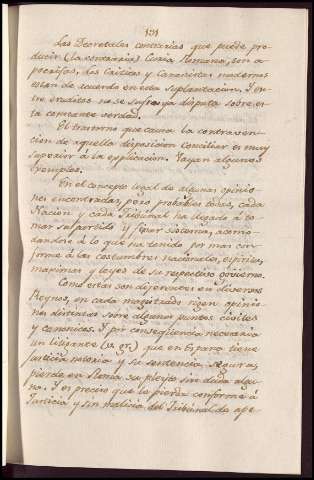 131
Las Decretales contrarias que puede pro-
ducir (la contraria) Curia Romana, son a-
pocrifas. Los Criticos y Canonistas modernos
estan de acuerdo en esta suplantacion. Y en-
tre eruditos no se sufre ya disputa sobre es-
ta constante verdad.
El trastorno que causa la contraven-
cion de aquella disposicion Conciliar es muy
superior á la explicacion. Vayan algunos
exemplos.
En el concepto legal de algunas opinio-
nes encontradas, pero probables todas, cada
Nacion y cada Tribunal ha llegado á to-
mar su partido y fixar sistema, acomo-
dandose á lo que ha tenido por mas con-
forme á las costumbres nacionales, espiritu,
maximas y leyes de su respectivo govierno.
Como estas son diferentes en diversos
Reynos, en cada magistrado rigen opinio-
nes distintas sobre algunos puntos civiles
y canonicos. Y por conseqüencia necesaria
un litigante (v. gr.) que en España tiene
justicia notoria y su sentencia segura,
pierde en Roma su pleyto sin duda algu-
na. Y es preciso que lo pierda conforme á
Justicia y sin malicia del Tribunal de ape-